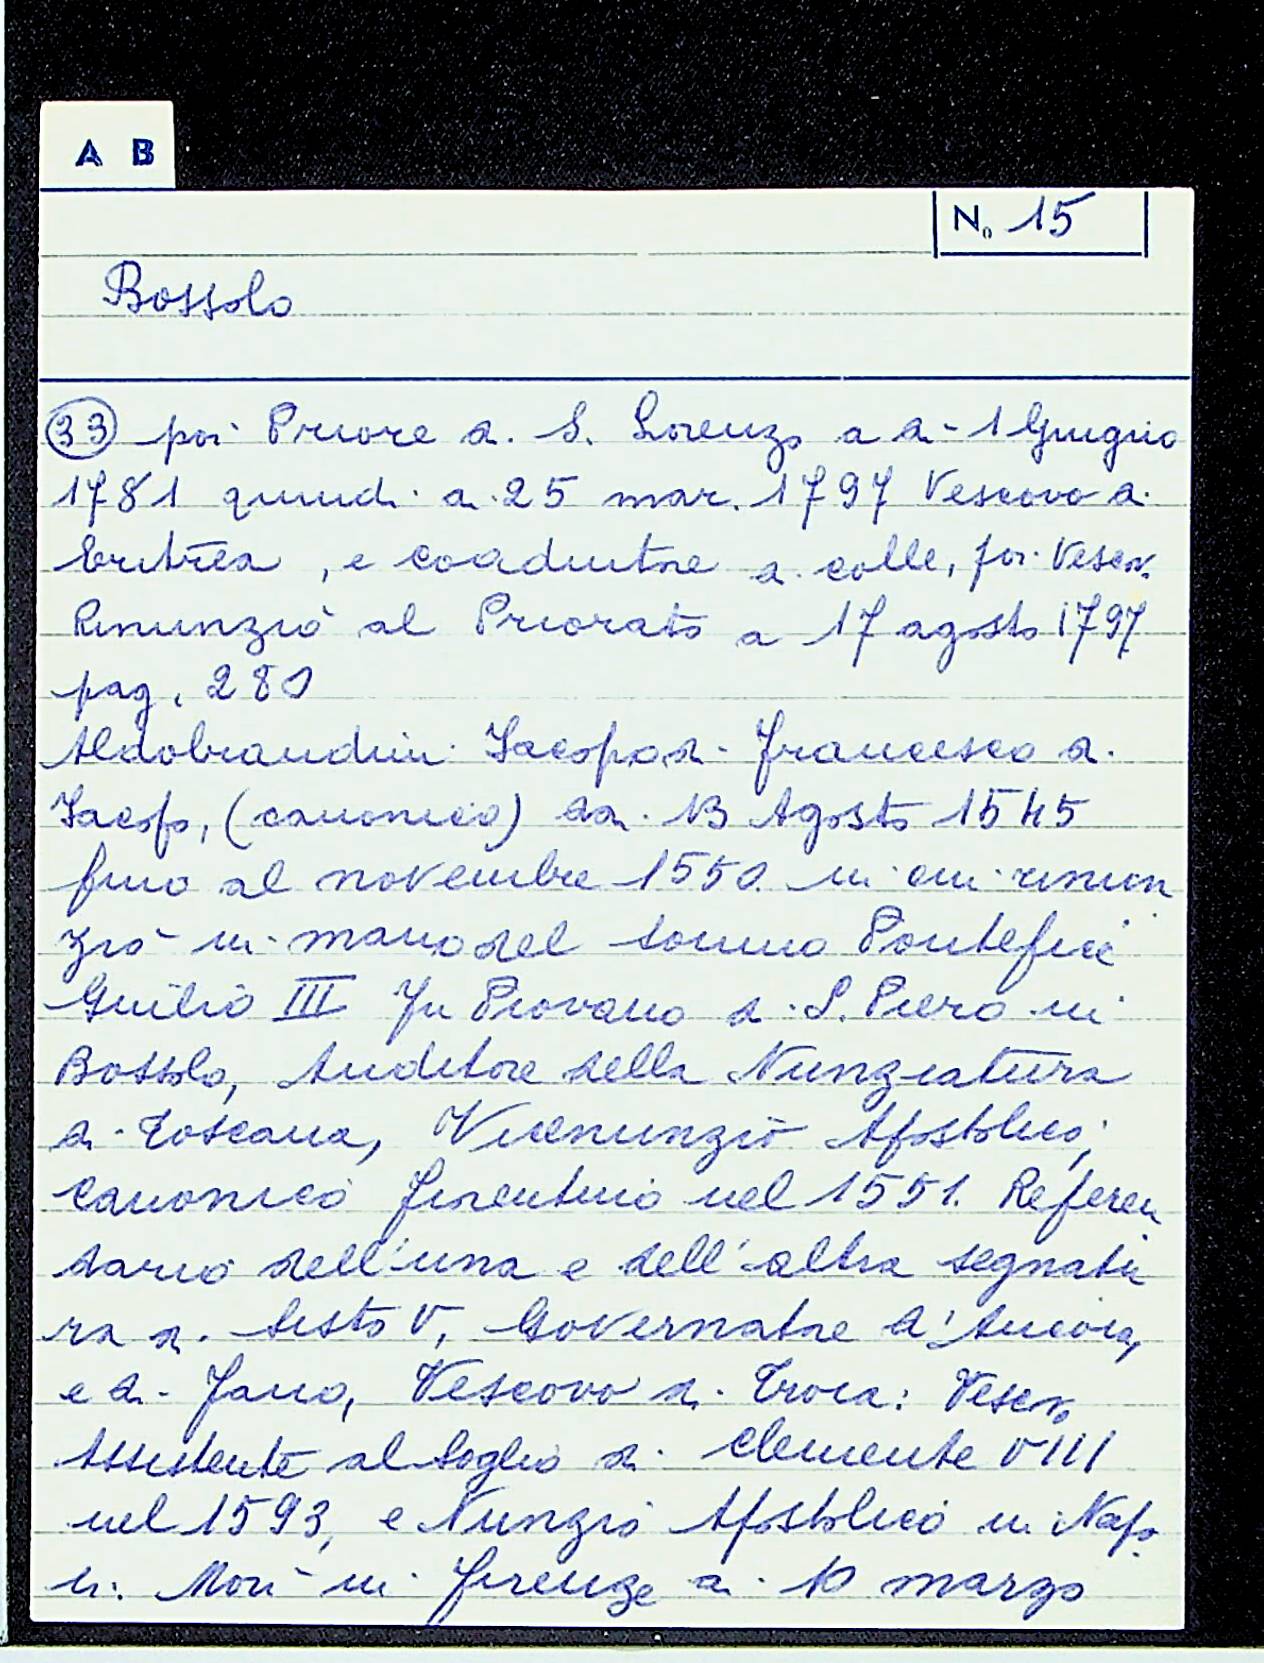 A B
No 15
Bossolo
33 poi Priore di S. Lorenzo a di 1 Giugno
1781 quindi a 25 mar. 1797 Vescovo di
Eritrea, e coadiutore a colle, poi Vescov.
Rinunziò al Priorato a 17 agosto 1797
pag. 280
Aldobrandini Iacopo di Francesco di
Iacopo, (canonico) da 13 Agosto 1545
fino al novembre 1550 in cui rinun
ziò in mano del sommo Pontefice
Giulio III Fu Piovano di S. Piero in
Bossolo, Auditore della Nunziatura
di Toscana, Vicenunzio Apostolico,
canonico fiorentino nel 1551. Referen
dario dell'una e dell'altra segnatu
ra di Sisto V, Governatore d'Ancona,
e di Fano, Vescovo di Troia: Vescov
Assistente al Soglio di Clemente VIII
nel 1593, e Nunzio Apostolico in Napo
li. Morì in Firenze a 10 marzo